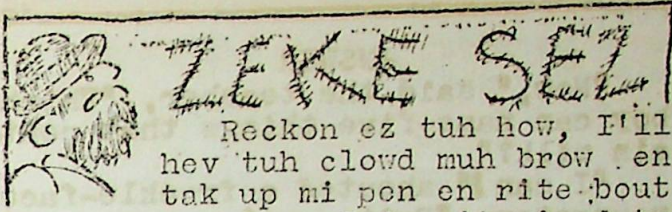 ZEKE SEZ
Reckon ez tuh how, I'll
hev tuh clowd muh brow en
tak up mi pen en rite bout